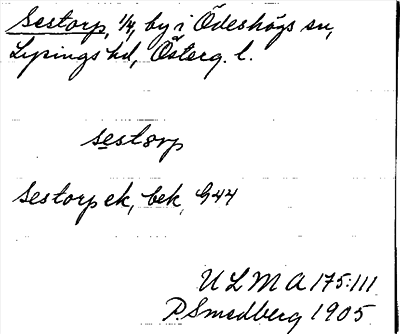 Sestorp, 1/4, by i Ödeshögs sn,
Lysings hd, Österg. l.
sestorp
Sestorp ek, bek, G44
ULMA 175:111
P. Smedberg 1905